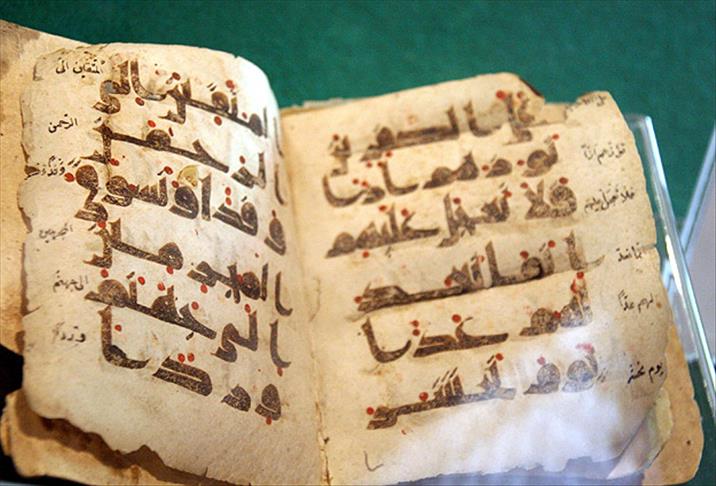 على الكفرين
تؤزهم ازا
فلا تعجل عليهم
انما نعد
لهم عدا
يوم نحشر
فلا تعجل عليهم
انما نعد
لهم عدّا
يوم نحشر
المتقين الى
الرحمن
وفدا ونسوق
المجرمين
الى جهنم
وردا
المتقين الى
الرحمن
المجرمين
الى جهنم
وردا